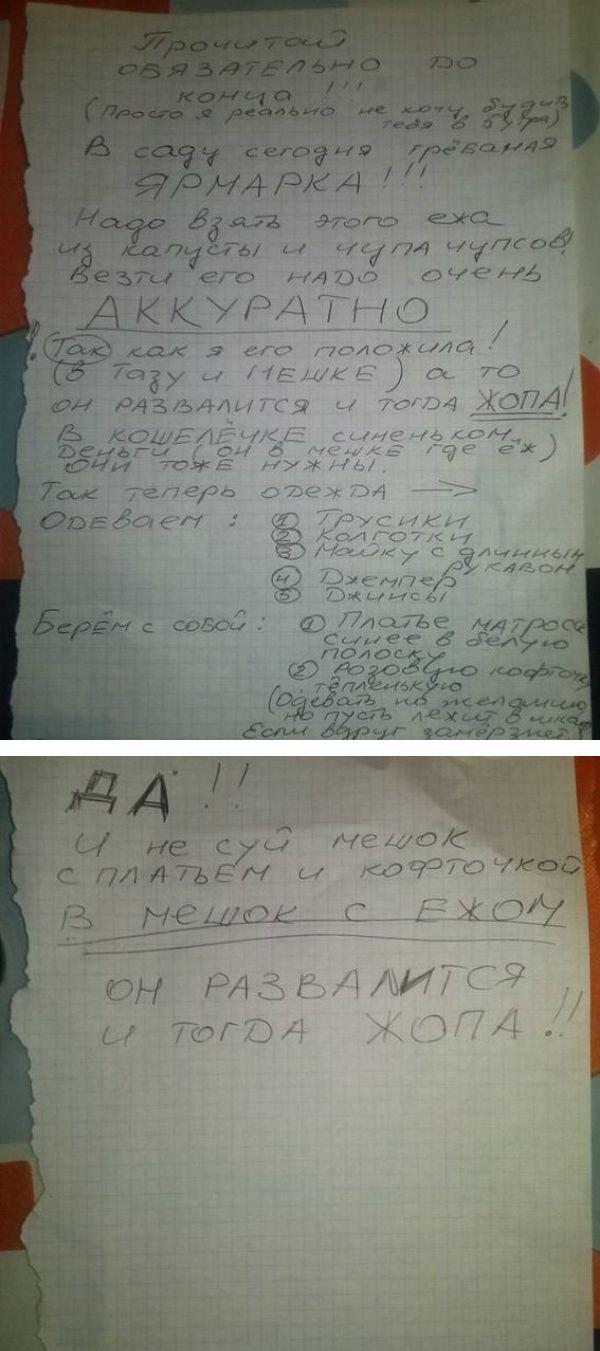 Прочитай
ОБЯЗАТЕЛЬНО ДО
КОНЦА !!!
(Просто я реально не хочу будить
тебя в 5 утра)
В саду сегодня грёбаная
ЯРМАРКА!!!
Надо взять этого ежа
из капусты и чупа чупсов!
Везти его НАДО очень
АККУРАТНО
! Так как я его положила!
(В Тазу и МЕШКЕ) а то
он РАЗВАЛИТСЯ и тогда ЖОПА!
В КОШЕЛЁЧКЕ синеньком
Деньги (он в мешке где ёж)
ОНИ ТОЖЕ НУЖНЫ.
Так теперь одежда →
Одеваем: 1 Трусики
2 Колготки
3 Майку с длинным
рукавом
4 Джемпер
5 Джинсы
Берём с собой: 1 Платье матроск
синее в белую
полоску
2 Розовую кофточку
тёпленькую
(Одевать по желанию
но пусть лежит в шкаф
Если вдруг замёрзнет)
ДА!!
И не суй мешок
С ПЛАТЬЕМ и КОФТОЧКОЙ
В МЕШОК С ЕЖОМ
ОН РАЗВАЛИТСЯ
И ТОГДА ЖОПА!!